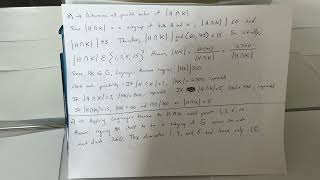 a) → Determine all possible orders of |H∩K|.
Since H∩K is a subgroup of both H and K, |H∩K| | 60 and
|H∩K| | 45. Therefore, |H∩K| | gcd(60,45) = 15. So
|H∩K| ∈ {1,3,5,15}. Moreover, |HK| = = 2700 / |H∩K|
Since HK ≤ G, Lagrange's theorem requires |HK| | 360.
Check each possibility: If |H∩K|=1, |HK| = 2700, impossible
If |H∩K|=3, |HK|=900, impossible. If |H∩K|=5, |HK|=540, impossible
If |H∩K|=15, |HK|=180 and 180 | 360 so |H∩K| =
→ Applying Lagrange's theorem to H∩K would permit 1, 3, 5, 15.
However HK to be a subgroup of G its order
must divide 360. This eliminates 1, 3, and 5 and leaves only 15.